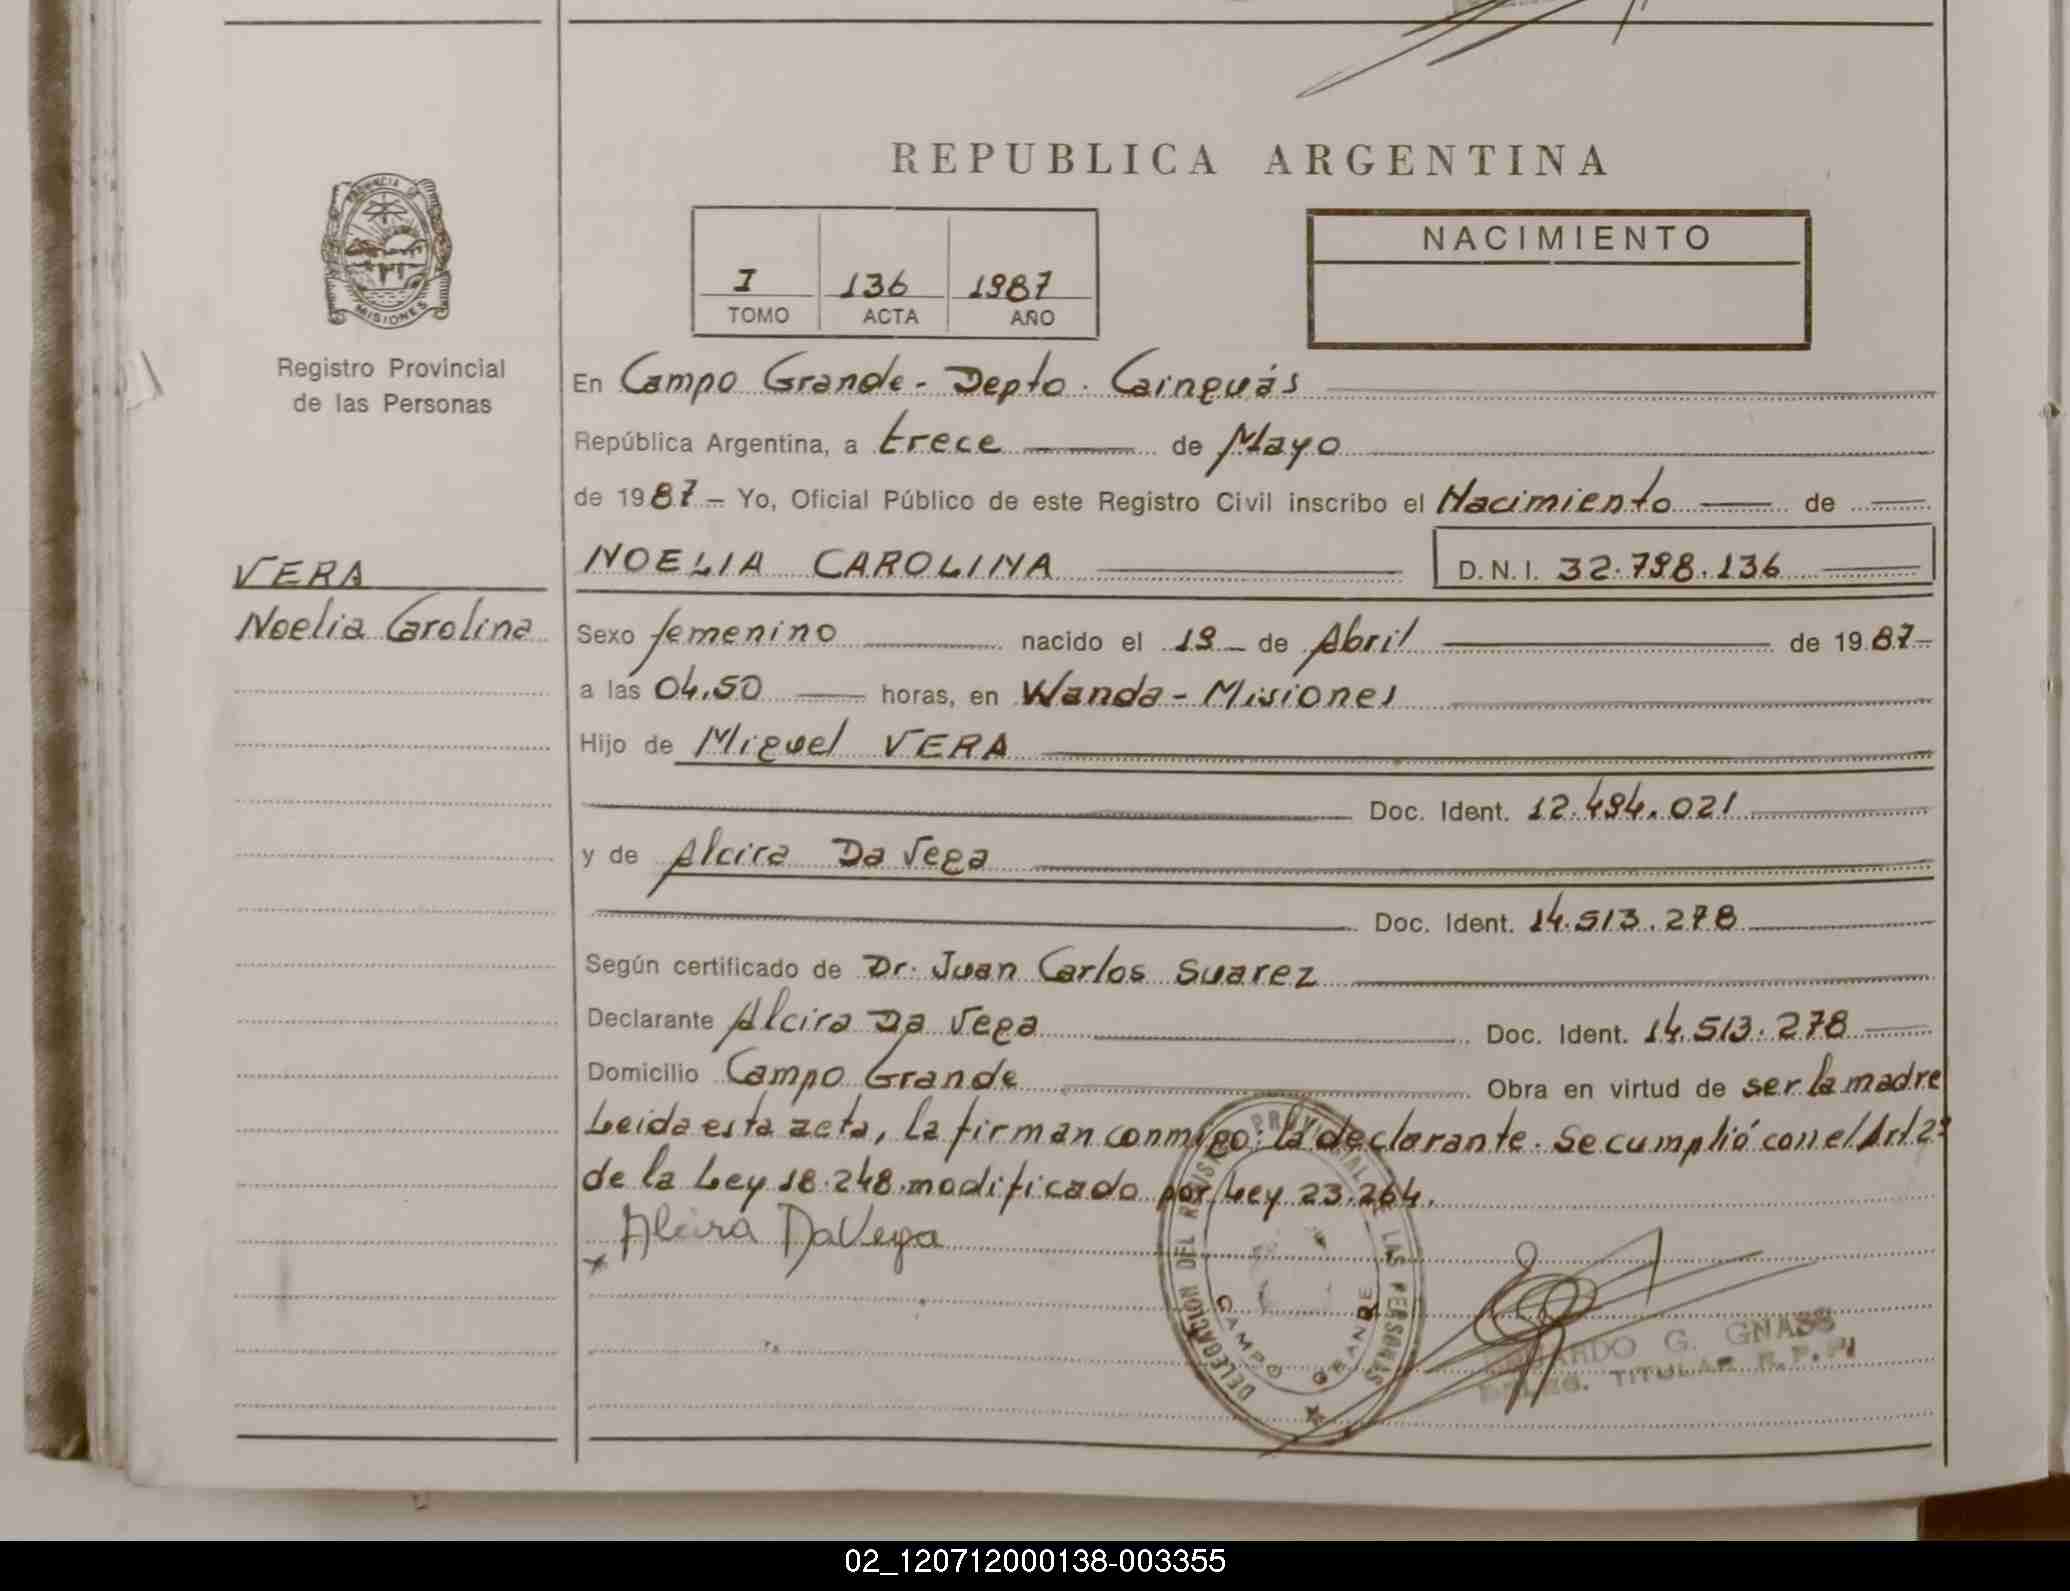 REPUBLICA ARGENTINA
PROVINCIA DE MISIONES
Registro Provincial
de las Personas
I 136 1987
TOMO ACTA AÑO
NACIMIENTO
En Campo Grande - Depto. Cainguás
República Argentina, a trece de Mayo
de 1987 - Yo, Oficial Público de este Registro Civil inscribo el Nacimiento de
VERA
Noelia Carolina
NOELIA CAROLINA D.N.I. 32.798.136
Sexo femenino nacido el 19 de Abril de 1987
a las 04.50 horas, en Wanda - Misiones
Hijo de Miguel VERA
Doc. Ident. 12.494.021
y de Alcira Da Vega
Doc. Ident. 14.513.278
Según certificado de Dr. Juan Carlos Suarez
Declarante Alcira Da Vega Doc. Ident. 14.513.278
Domicilio Campo Grande Obra en virtud de ser la madre
Leida esta acta, la firman conmigo: la declarante. Se cumplió con el Art. 2º
de la Ley 18.248 modificado por Ley 23.264.
Alcira DaVega
DELEGACION DEL REGISTRO PROVINCIAL DE LAS PERSONAS
CAMPO GRANDE
G. GNASS
DELEG. TITULAR R.P.P.
02_120712000138-003355